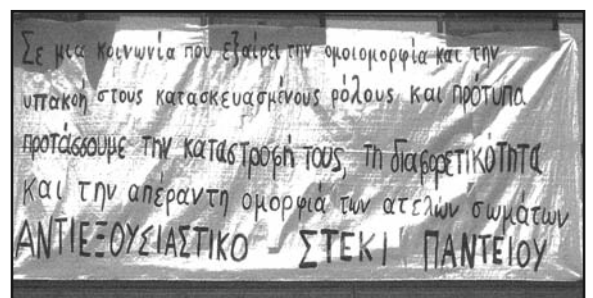 Σε μια κοινωνία που εξαίρει την ομοιομορφία και την
υπακοή στους κατασκευασμένους ρόλους και πρότυπα
προτάσσουμε την καταστροφή τους, τη διαφορετικότητα
και την απέραντη ομορφιά των ατελών σωμάτων
ΑΝΤΙΕΞΟΥΣΙΑΣΤΙΚΟ ΣΤΕΚΙ ΠΑΝΤΕΙΟΥ